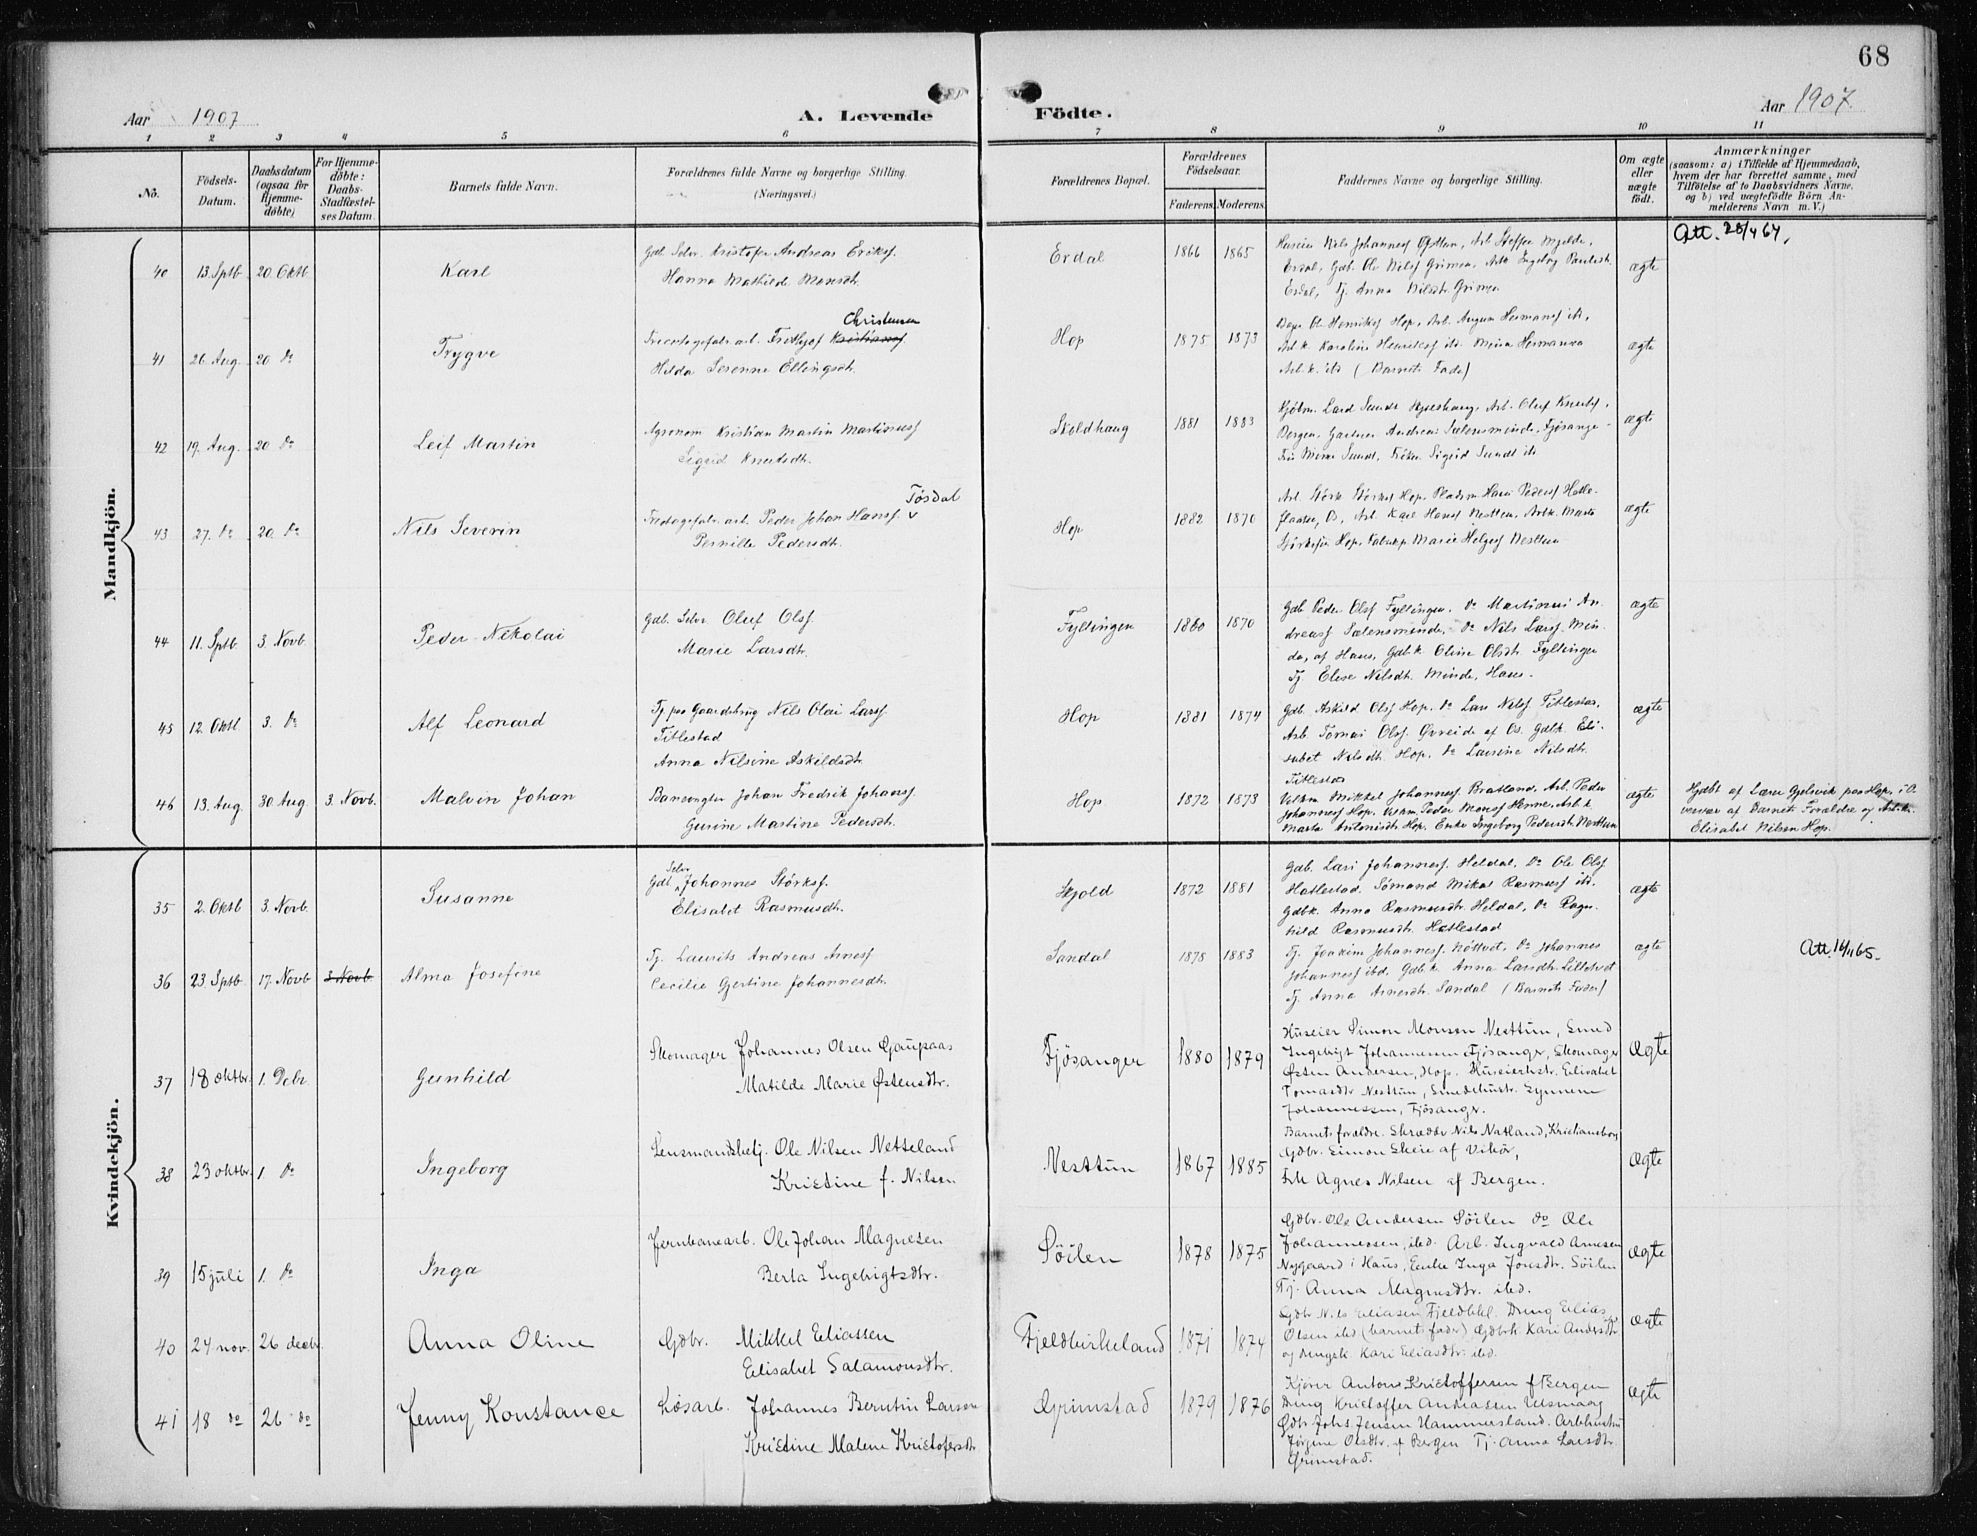 68
Aar 1907
A. Levende
Födte.
Aar 1907.
1 2 3 4 5 6 7 8 9 10 11
Nö.
Födsels-
Datum.
Daabsdatum
(ogsaa for
Hjemme-
döbte)
For Hjemme-
döbte:
Daabs-
Stadfæstel-
ses Datum.
Barnets fulde Navn.
Forældrenes fulde Navne og borgerlige Stilling.
(Næringsvei.)
Forældrenes Bopæl.
Forældrenes
Födselsaar.
Faderens. Moderens.
Faddernes Navne og borgerlige Stilling.
Om ægte
eller
uægte
födt.
Anmærkninger
(saasom: a) i Tilfælde af Hjemmedaab,
hvem der har forrettet samme, med
Tilföielse af to Daabsvidners Navne,
og b) ved uægtefödte Börn An-
melderens Navn m. V.)
Mandkjön.
40 13. Septb. 20. Oktb. Karl
Gdb. Selv. Kristofer Andreas Eriksf.
Hanna Mathilde Monsdtr.
Erdal 1866 1865
Huseier Nils Johannesf
Erdal, Gdb. Ole Nilsf Grimen, Arbk Ingeborg
Erdal, Tj. Anna Nilsdtr. Grimen
ægte
Att. 28/4 64.
41 26. Aug. 20. Do Trygve
Christensen
Fridtjof Kristiansf
Hilda Serenne Ellingsdtr.
Hop 1875 1873
Ole Henriksf Hop, Arb. August Hermansf ibd,
Arbk. Karoline Henriksf ibd. Mina Hermansen
Arb.k. ibd (Barnets Fader)
ægte
42 19. Aug. 20 Do Leif Martin
Agronom Kristian Martin Martinusf
Sigrid Knutsdtr.
Skjoldhaug 1881 1883
Arb. Oluf Knutsf,
Bergen, Gartner Andreas Sælensminde, Fjösanger
Sundt, Frøken Sigrid Sundt ibd
ægte
43 27. Do 20. Do Nils Severin
Tøsdal
Peder Johan Hansf.
Pernille Pedersdtr.
Hop 1882 1870
Arb. Størk Størksf Hop, Pladsm Hans Pedersf
Os, Arb. Karl Hansf Nesttun, Arbk. Marta
Hop, Marie Helgesf Nesttun
ægte
44 11. Septb. 3. Novb. Peder Nikolai
Gdb. Selv Oluf Olsf.
Marie Larsdtr.
Fyllingen 1880 1870
Gdb Peder Olsf Fyllingen, Do Martinus An-
dreasf Sælensminde, Do Nils Larsf. Min-
de, af Haus, Gdbk Oline Olsdtr. Fyllingen
Tj. Elise Nilsdtr. Minde, Haus.
ægte
45 12. Oktb. 3. Do Alf Leonard
Tj paa Gaardsbrug Nils Olai Larsf
Titlestad
Anna Nilsine Askildsdtr.
Hop 1881 1874
Gdb. Askild Olsf Hop. Do Lars Nilsf Titlestad,
Arb. Tørnas Olsf. Øvreide af Os. Gdbk. Eli-
sabet Nilsdtr. Hop. Do Laurine Nilsdtr.
Titlestad
ægte
46 13. Aug. 30 Aug. 3. Novb. Malvin Johan
Banevogter Johan Fredrik Johansf.
Gurine Martine Pedersdtr.
Hop 1872 1873
Mikkel Johannesf Bratland, Arb. Peder
Johannesf Hop, Peder Monsf Henne, Arb.k.
Marta Antonisdtr Hop, Enke Ingeborg Pedersdtr. Nesttun
ægte
Hjdbt af Lærer Gjelsvik paa Hop, i O-
vervær af Barnets Forældre og Arb.k.
Elisabet Nilsen Hop.
Kvindekjön.
35 2. Oktb 3. Novb. Susanne
Gdb. Selv Johannes Størksf.
Elisabet Rasmusdtr.
Skjold 1872 1881
Gdb. Lars Johannesf. Heldal, Do Ole Olsf
Hatlestad. Sömand Mikal Rasmusf ibd.
Gdbk. Anna Rasmusdtr. Heldal, Do Ragn-
hild Rasmusdtr. Hatlestad
ægte
36 23. Septb. 17. Novb 3 Novb. Alma Josefine
Tj. Laurits Andreas Arnesf
Cecilie Gjertine Johannesdtr.
Sandal 1878 1883
Tj. Joakim Johannesf. Nöttvet, Do Johannes
Johannesf ibd. Gdbk. Anna Larsdtr. Lilletvet
Tj. Anna Arnesdtr. Sandal (Barnets Fader)
ægte
Att. 16/11 65.
37 18 oktbr. 1. Debr. Gunhild
Skomager Johannes Olsen Gaupaas
Matilde Marie Østensdtr.
Fjösanger 1880 1879
Huseier Simon Monsen Nesttun, Smed
Ingebrigt Johannessen Fjösanger, Skomager
Østen Andersen, Hop. Huseierhstr. Elisabet
Tomasdtr Nesttun, Smedehustr. Synneva
Johannessen, Fjösangr.
ægte
38 23 oktbr. 1. Do Ingeborg
Lensmandsbetj. Ole Nilsen Netteland
Kristine f. Nilsen
Nesttun 1867 1885
Barnets forældre. Skrædder Nils Natland, Kristiansborg
Gdbr. Simon Skeie af Vikör,
Frk Agnes Nilsen af Bergen.
ægte
39 15 juli 1. Do Inga
Jernbanearb. Ole Johan Magnesen
Berta Ingebrigtsdtr.
Söilen 1878 1875
Gdbr. Ole Andersen Söilen do Ole
Johannessen, ibd. Arb. Ingvald Arnesen
Nygaard i Haus, Enke Inga Jonsdtr. Söilen
Tj. Anna Magnusdtr. ibd.
ægte
40 24 nov. 26 decbr. Anna Oline
Gdbr. Mikkel Eliassen
Elisabet Salamonsdtr.
Fjeldbirkeland 1871 1874
Gdbr Nils Eliasen Fjeldbkl. Dreng Elias
Olsen ibd (barnets fader) Gdbrk Kari Andersdtr
og Kari Eliasdtr. ibd.
ægte
41 18 do 26 do Jenny Konstance
Lösarb. Johannes Berntin Larsen
Kristine Malene Kristofersdtr
Grimstad 1879 1876
Kjører Antons Kristoffersen f Bergen
Dreng Kristoffer Andreasen
Gdbr Johs. Jensen Hammersland. Arbhustru
Jörgine Olsdtr. af Bergen Tj. Anna Larsdtr.
Grimstad.
ægte